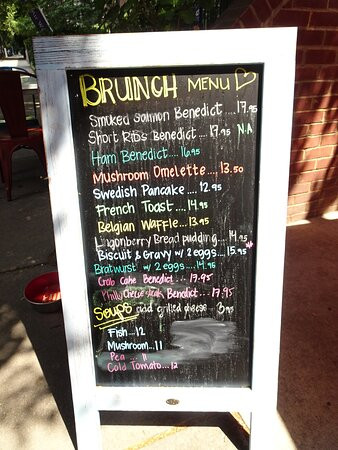 BRUNCH MENU
Smoked Salmon Benedict.... 17.95
Short Ribs Benedict.... 17.95 N/A
Ham Benedict.... 16.95
Mushroom Omelette... 13.50
Swedish Pancake... 12.95
French Toast... 14.95
Belgian Waffle... 13.95
Lingonberry Bread pudding... 14.95
Biscuit & Gravy w/ 2 eggs... 15.95
Bratwurst w/ 2 eggs... 14.95
Crab Cake Benedict... 17.95
Philly Cheese Steak Benedict... 17.95
Soups add grilled cheese... 3.95
Fish...12
Mushroom...11
Pea... 11
Cold Tomato...12